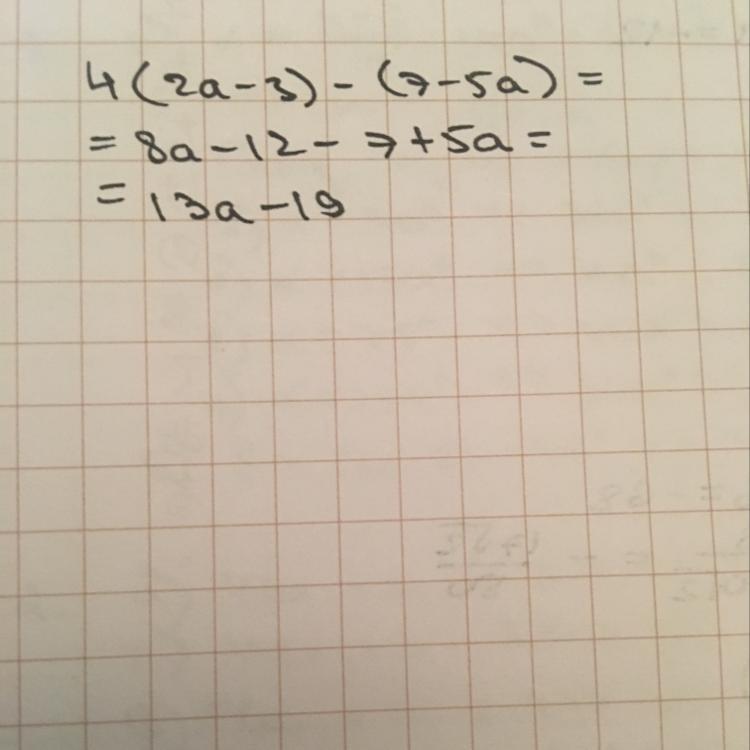 4(2a-3)-(7-5a)=
=8a-12-7+5a=
=13a-19